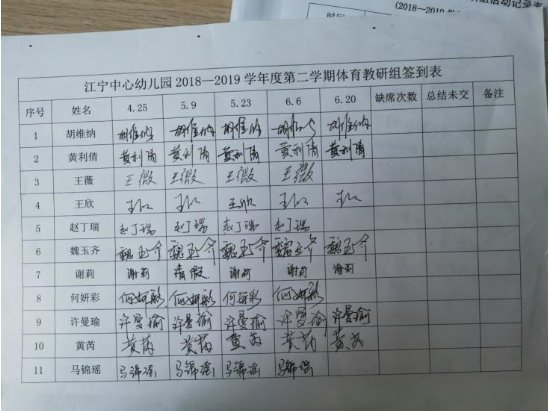 活动记录表
时间
(2018—2019
江宁中心幼儿园 2018—2019 学年度第二学期体育教研组签到表
序号 姓名 4.25 5.9 5.23 6.6 6.20 缺席次数 总结未交 备注
1 胡维纳 胡维纳 胡维纳 胡维纳 胡维纳 胡维纳
2 黄利倩 黄利倩 黄利倩 黄利倩 黄利倩 黄利倩
3 王薇 王薇 王薇 王薇 王薇
4 王欣 王欣
5 赵丁瑞 赵丁瑞 赵丁瑞 赵丁瑞 赵丁瑞
6 魏玉齐 魏玉齐 魏玉齐 魏玉齐 魏玉齐 魏玉齐
7 谢莉 谢莉 请假 谢莉 谢莉 谢莉
8 何妍彩 何妍彩 何妍彩 何妍彩 何妍彩
9 许曼瑜 许曼瑜 许曼瑜 许曼瑜 许曼瑜 许曼瑜
10 黄芮 黄芮 黄芮 黄芮 黄芮 黄芮
11 马锦瑶 马锦瑶 马锦瑶 马锦瑶 马锦瑶